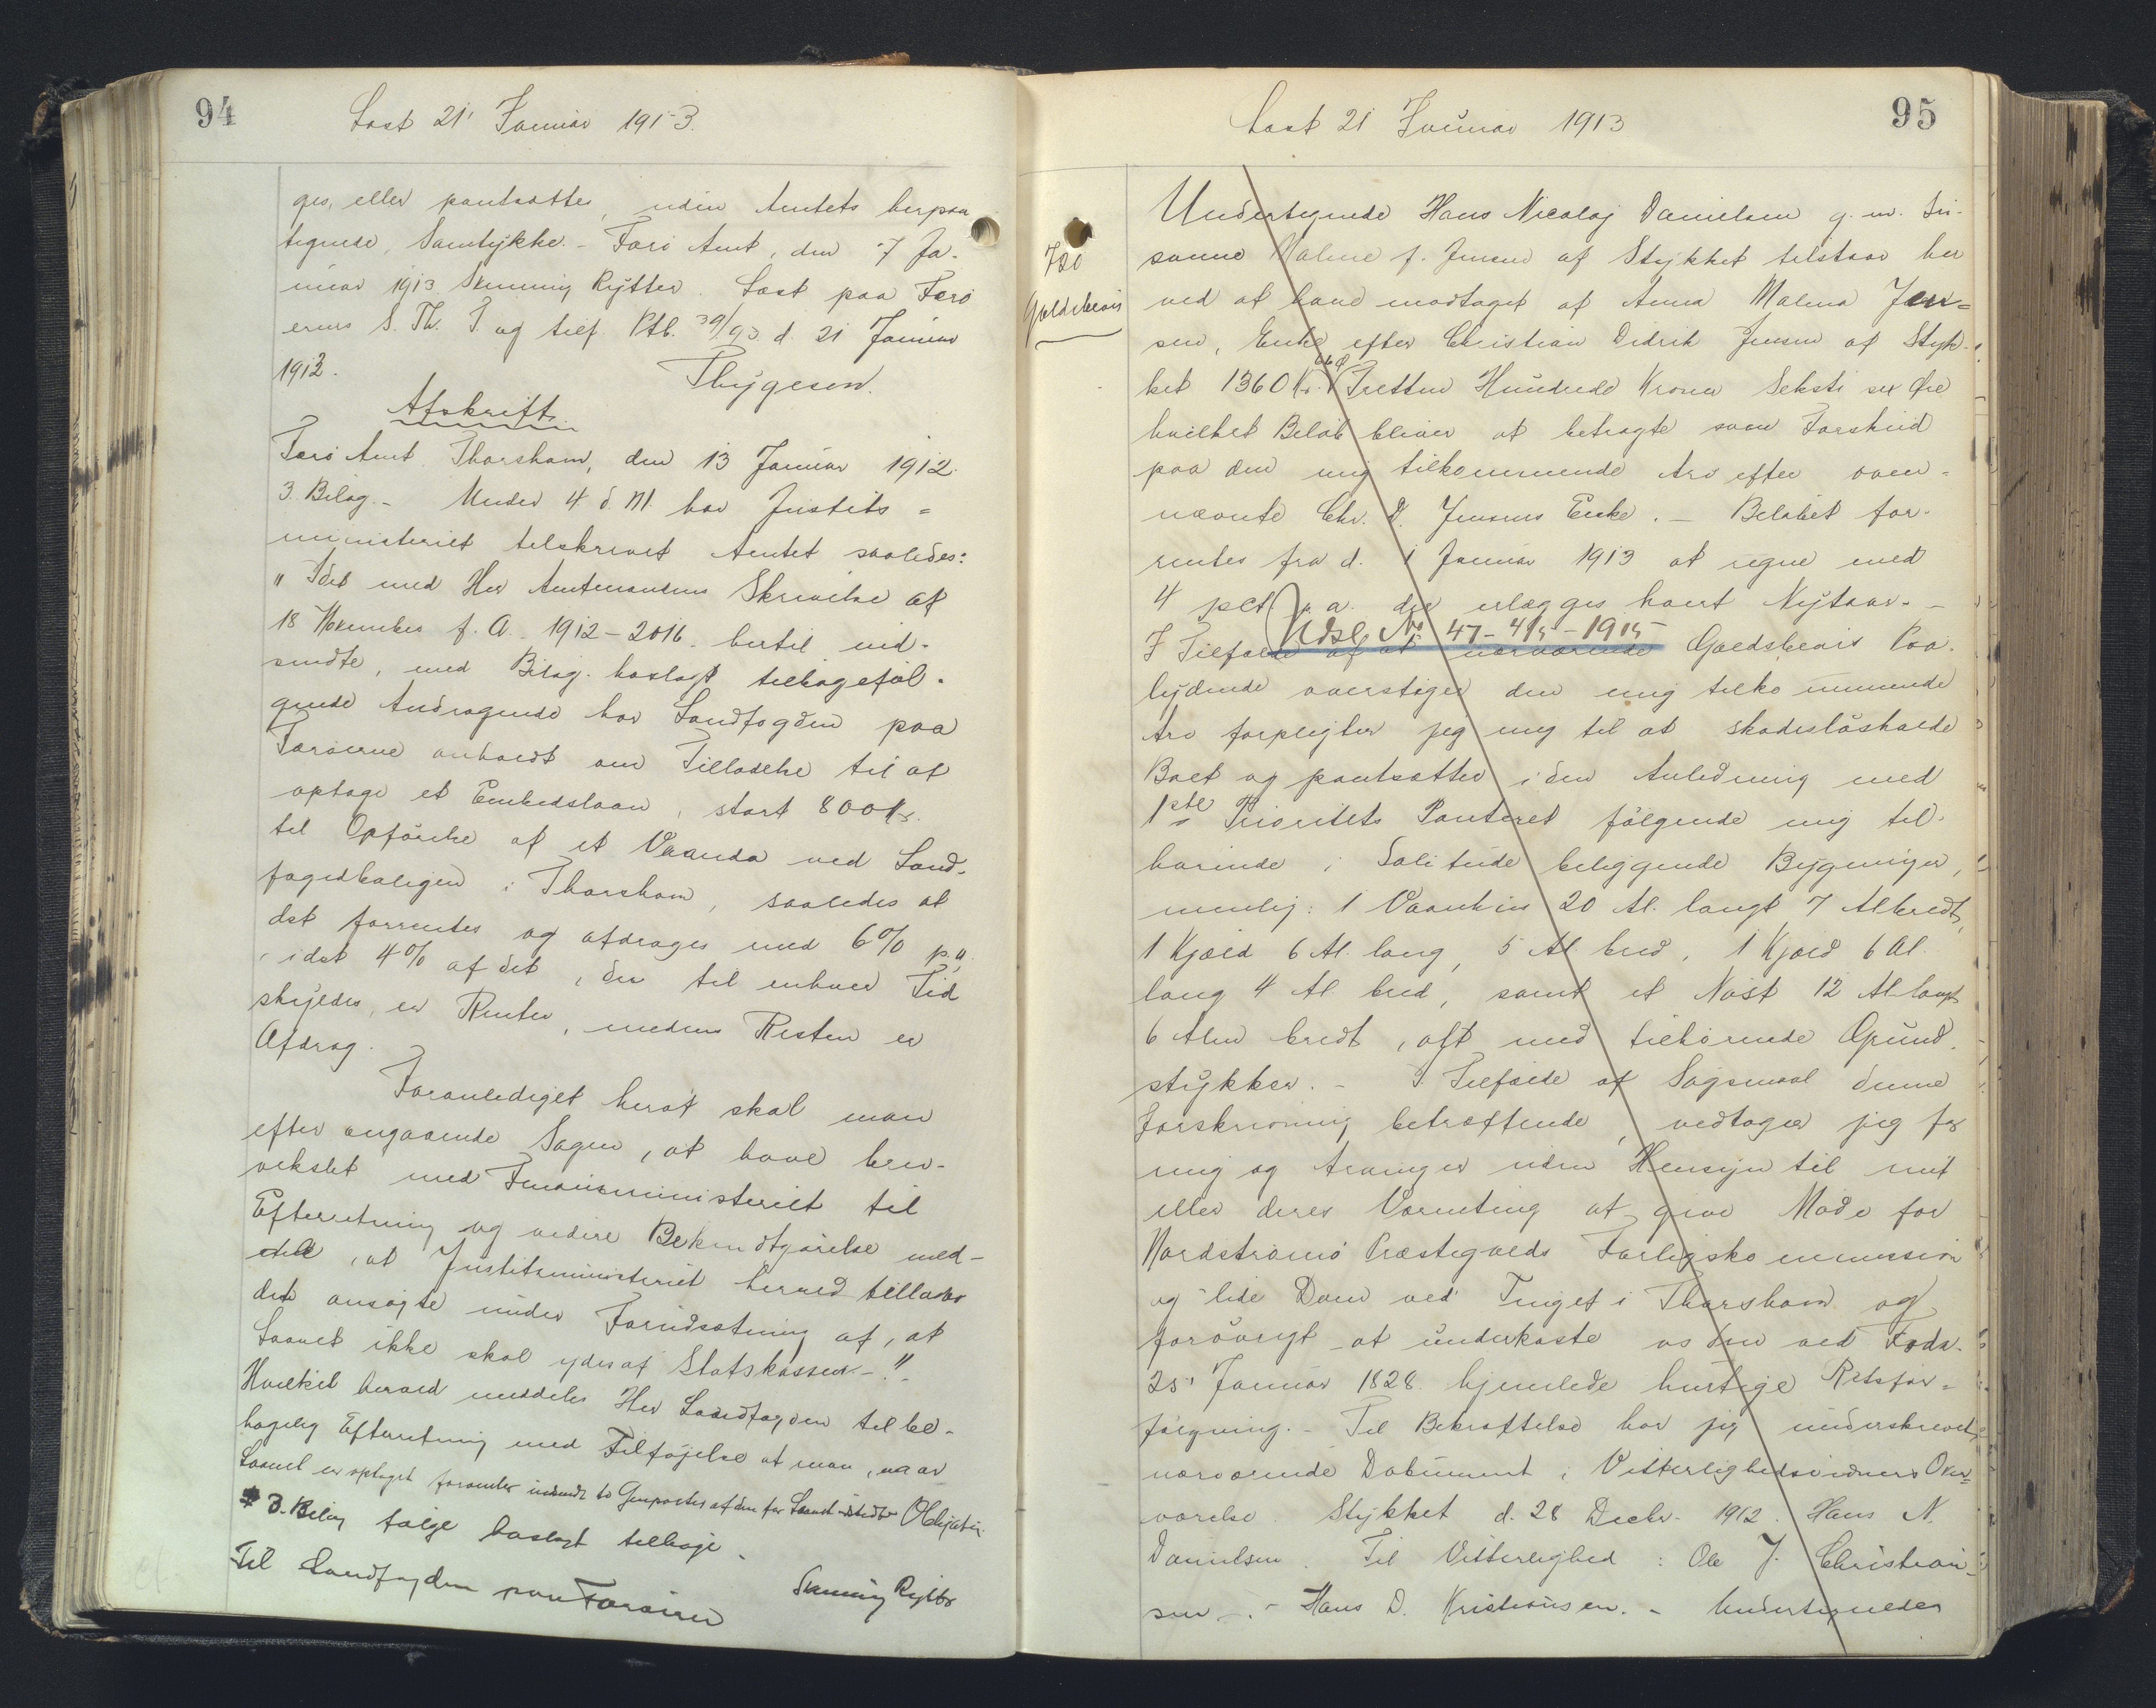 94
Læst 21' Januar 1913.
ges, eller pantsættes, uden Amtets herpaa
tegnede, Samtykke. - Færø Amt, den 7 Ja-
nuar 1913 Svenning Rytter. Læst paa Færø
ernes S. Th. T. og tilf. Ptb. 39/93. d. 21 Januar
1913. Thygesen.
Afskrift.
Færø Amt Thorshavn, den 13 Januar 1912.
3. Bilag. - Under 4 d. M. har Justits=
ministeriet tilskrevet Amtet saaledes:
"Idet med Hr Amtmandens Skrivelse af
18 November f. A. 1912-2016. hertil ind-
sendte, med Bilag. hoslagt tilbageføl-
gende Andragende har Landfogden paa
Færøerne anholdt om Tilladelse til at
optage et Embedslaan, stort 800 Kr.
til Opførelse af et Veranda ved Land-
fogedboligen i Thorshavn, saaledes at
det forrentes og afdrages med 6% p.a.
, idet 4% af det, der til enhver Tid
skyldes, er Renter, medens Resten er
Afdrag.
Foranlediget heraf skal man
efter angaaende Sagen, at have brev-
vekslet med Finansministeriet til
Efterretning og videre Bekendtgørelse med-
dele, at Justitsministeriet herved tillader
det ansøgte under Forudsætning af, at
Laanet ikke skal ydes af Statskassen-."
Hvilket herved meddeles Hr Landfogden til be-
hagelig Efterretning med Tilføjelse at man, naar
Laanet er optaget forventer indsendt to Genparter af den for Laanet udstedte Obligation.
3. Bilag følge hoslagt tilbage.
Svenning Rytter
Til Landfogden paa Færøerne
95
Læst 21 Januar 1913
730
Gældsbevis
Undertegnede Hans Nicolaj Danielsen g. m. Su-
sanne Malene f. Jensen af Stykket tilstaar her
ved at have modtaget af Anna Malena Jen=
sen, Enke efter Christian Didrik Jensen af Styk-
ket 1360 Kr. 66 Ø Tretten Hundrede Kroner Seksti sex Øre
hvilket Beløb bliver at betragte som Forskud
paa den mig tilkommende Arv efter oven-
nævnte Chr. D. Jensens Enke. - Beløbet for-
rentes fra d. 1 Januar 1913 at regne med
4 pct p. a. der erlægges hvert Nytaar. -
Udsl. No 47 - 4/5 - 1915
I Tilfælde af at nærværende Gældsbevis Paa-
lydende overstiger den mig tilkommende
Arv forpligter jeg mig til at skadesløsholde
Boet og pantsætter i den Anledning med
1ste Prioritets Panteret følgende mig til-
hørende i Solitude beliggende Bygninger,
nemlig: 1 Vaanhus 20 Al. langt 7 Al bredt,
1 Kjæld 6 Al. lang, 5 Al bred, 1 Kjæld 6 Al.
lang 4 Al bred, samt et Nøst 12 Al langt
6 Alen bredt, alt med tilhørende Grund-
stykker. - I Tilfælde af Søgsmaal denne
Forskrivning betræffende, vedtager jeg for
mig og Arvinger uden Hensyn til mit
eller deres Værneting at give Møde for
Nordstrømø Præstegælds Forligskommission
og lide Dom ved Tinget i Thorshavn og
forøvrigt at underkaste os den ved Frdn.
25' Januar 1828 hjemlede hurtige Retsfor=
følgning. - Til Bekræftelse har jeg underskrevet
nærværende Dokument i Vitterlighedsvidners Over=
værelse. Stykket d. 28 Decbr. 1912. Hans N.
Danielsen. Til Vitterlighed: Ole J. Christian-
sen. - Hans D. Kristiansen. - Undertegnedes